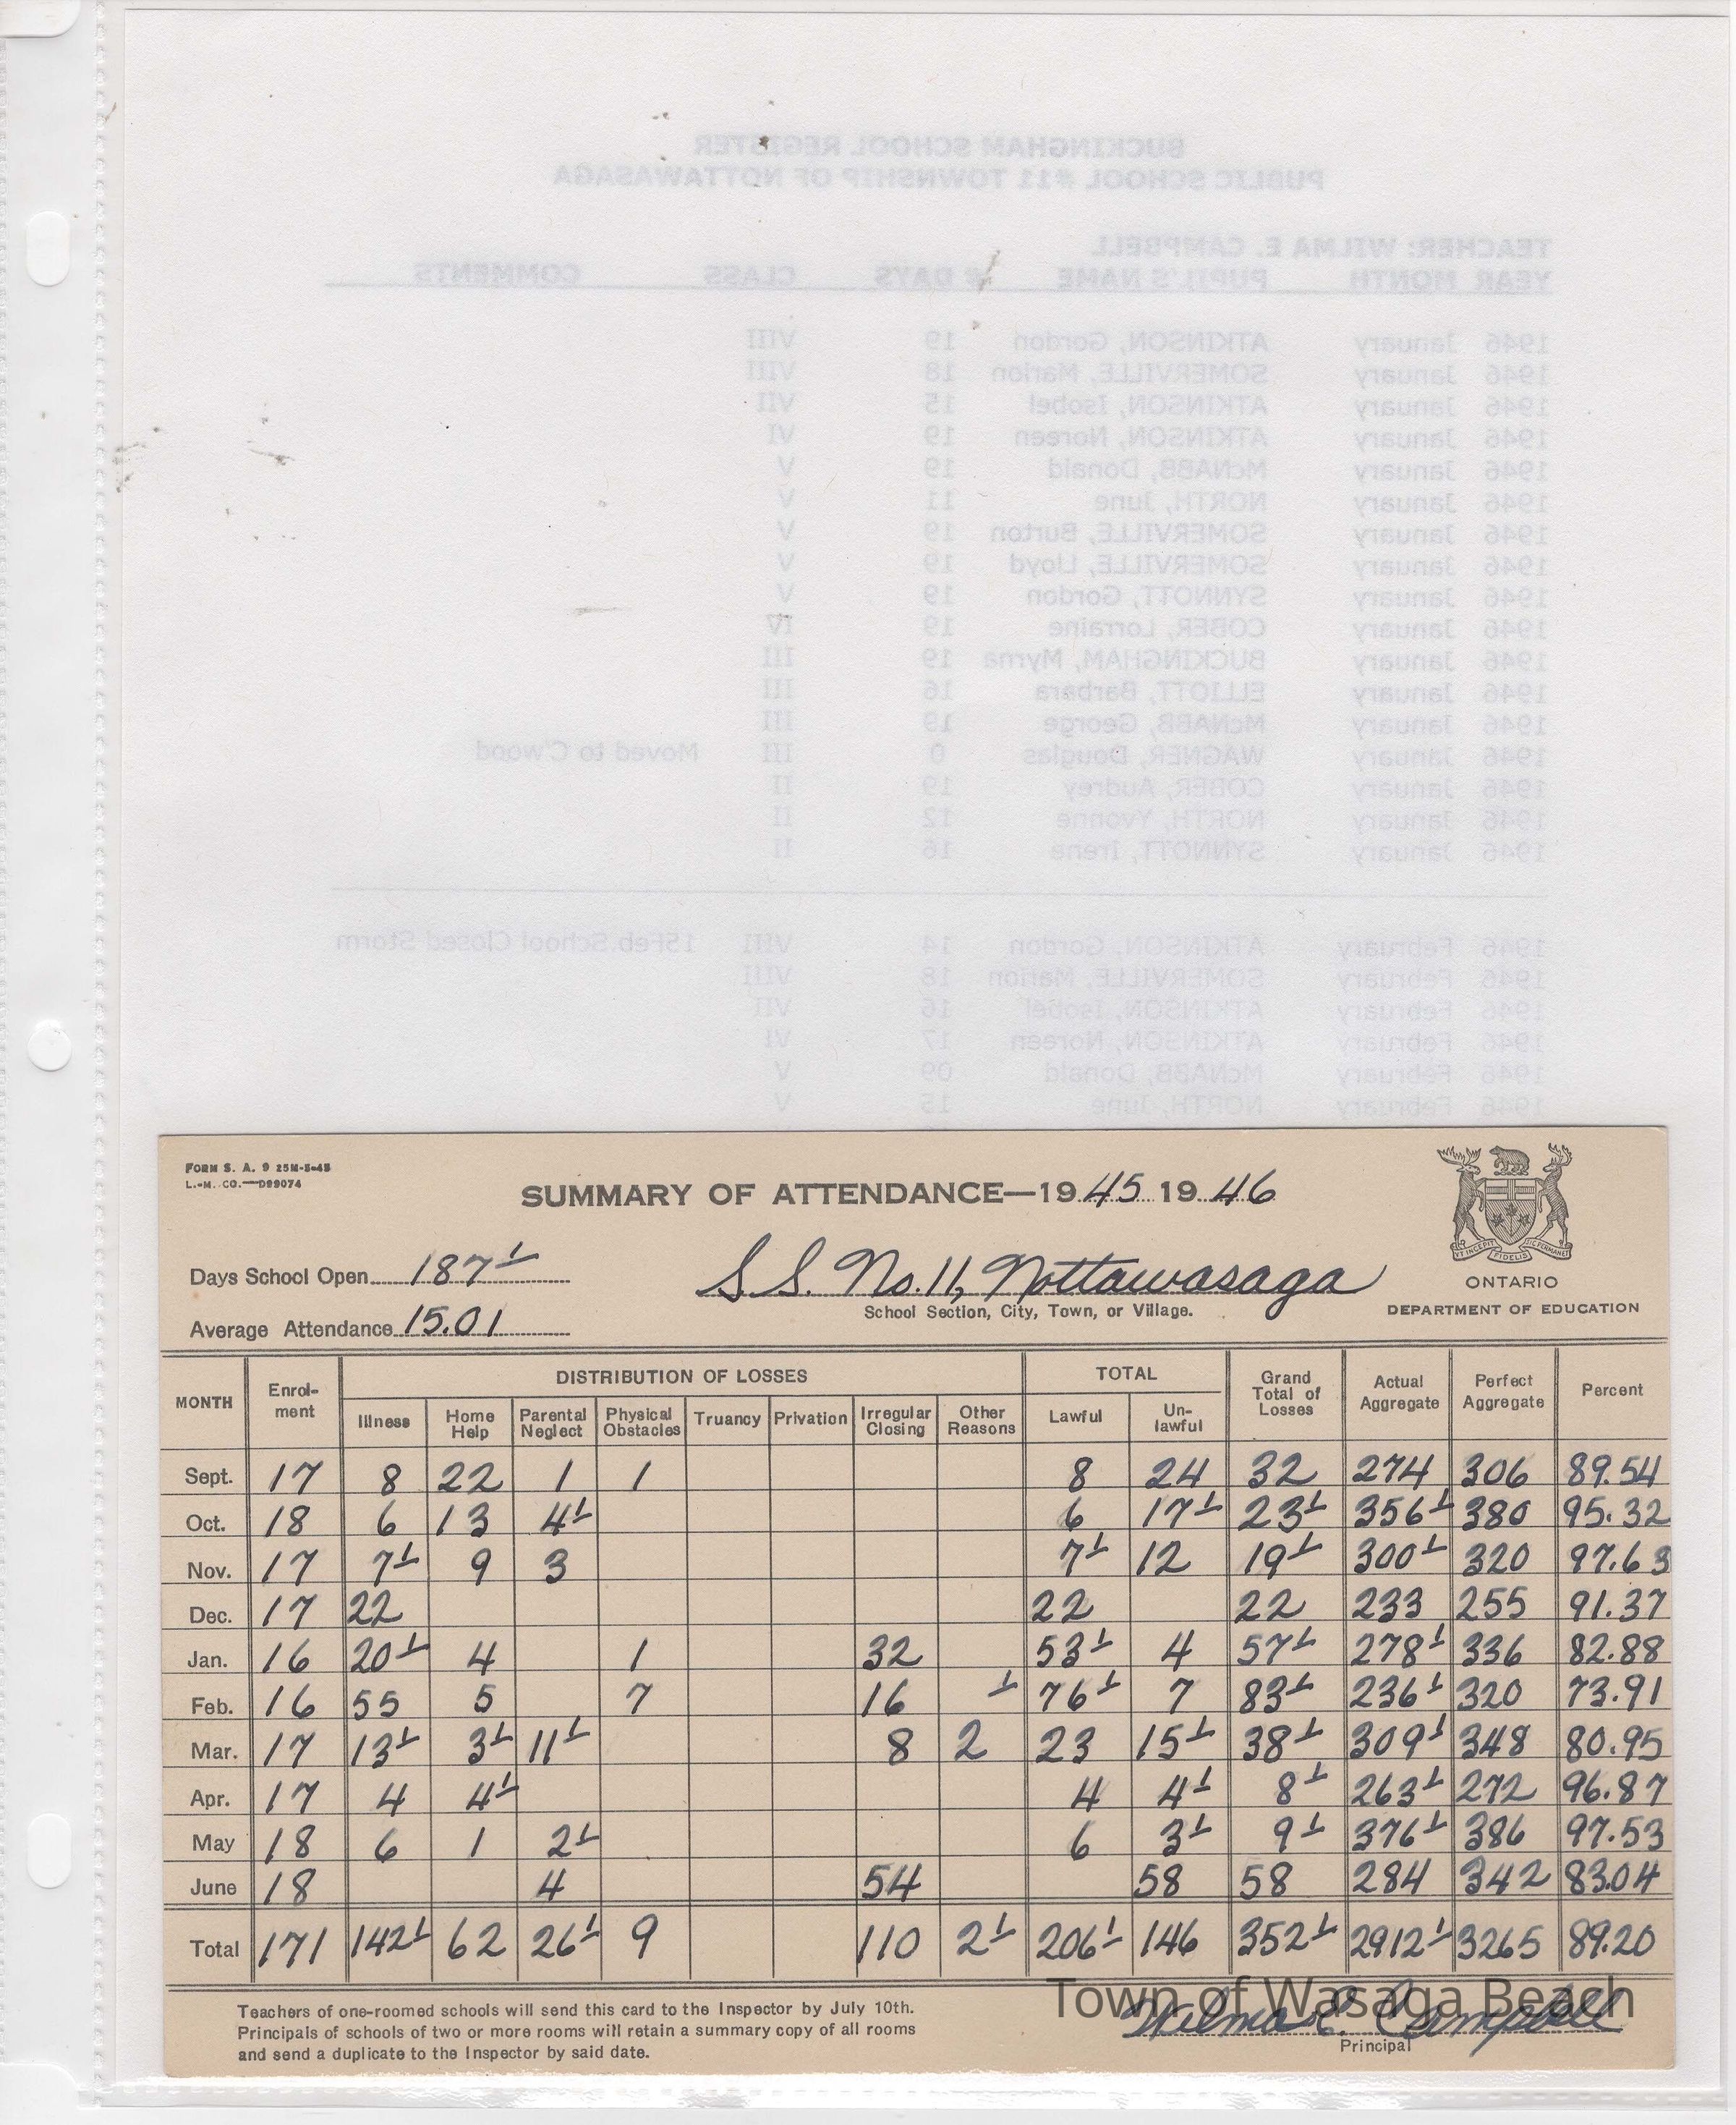 BUCKINGHAM SCHOOL REGISTER
PUBLIC SCHOOL #11 TOWNSHIP OF NOTTAWASAGA
TEACHER: WILMA E. CAMPBELL
YEAR MONTH PUPIL'S NAME # DAYS CLASS COMMENTS
1946 January ATKINSON, Gordon 19 VIII
1946 January SOMERVILLE, Marion 18 VIII
1946 January ATKINSON, Isobel 15 VII
1946 January ATKINSON, Noreen 19 VI
1946 January McNABB, Donald 19 V
1946 January NORTH, June 11 V
1946 January SOMERVILLE, Burton 19 V
1946 January SOMERVILLE, Lloyd 19 V
1946 January SYNNOTT, Gordon 19 V
1946 January COBER, Lorraine 19 IV
1946 January BUCKINGHAM, Myrna 19 III
1946 January ELLIOTT, Barbara 16 III
1946 January McNABB, George 19 III
1946 January WAGNER, Douglas 0 III Moved to C'wood
1946 January COBER, Audrey 19 II
1946 January NORTH, Yvonne 12 II
1946 January SYNNOTT, Irene 16 II
1946 February ATKINSON, Gordon 14 VIII 15Feb.School Closed Storm
1946 February SOMERVILLE, Marion 18 VIII
1946 February ATKINSON, Isobel 16 VII
1946 February ATKINSON, Noreen 17 VI
1946 February McNABB, Donald 09 V
1946 February NORTH, June 15 V
FORM S. A. 9 25M-5-45
L.-M. CO.—D99074
SUMMARY OF ATTENDANCE—1945 1946
Days School Open 187½
S.S. No. 11, Nottawasaga
School Section, City, Town, or Village.
Average Attendance 15.01
UT INCEPIT FIDELIS SIC PERMANET
ONTARIO
DEPARTMENT OF EDUCATION
MONTH Enrol-ment DISTRIBUTION OF LOSSES TOTAL Grand Total of Losses Actual Aggregate Perfect Aggregate Percent
Illness Home Help Parental Neglect Physical Obstacles Truancy Privation Irregular Closing Other Reasons Lawful Un-lawful
Sept. 17 8 22 1 1 8 24 32 274 306 89.54
Oct. 18 6 13 4½ 6 17½ 23½ 356½ 380 95.32
Nov. 17 7½ 9 3 7½ 12 19½ 300½ 320 97.63
Dec. 17 22 22 22 233 255 91.37
Jan. 16 20½ 4 1 32 53½ 4 57½ 278½ 336 82.88
Feb. 16 55 5 7 16 ½ 76½ 7 83½ 236½ 320 73.91
Mar. 17 13½ 3½ 11½ 8 2 23 15½ 38½ 309½ 348 80.95
Apr. 17 4 4½ 4 4½ 8½ 263½ 272 96.87
May 18 6 1 2½ 6 3½ 9½ 376½ 386 97.53
June 18 4 54 58 58 284 342 83.04
Total 171 142½ 62 26½ 9 110 2½ 206½ 146 352½ 2912½ 3265 89.20
Teachers of one-roomed schools will send this card to the Inspector by July 10th.
Principals of schools of two or more rooms will retain a summary copy of all rooms
and send a duplicate to the Inspector by said date.
Town of Wasaga Beach
Wilma E. Campbell
Principal